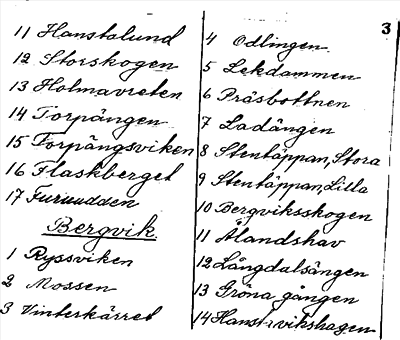 11 Hanstalund
12 Storskogen
13 Holmavreten
14 Torpängen
15 Torpängsviken
16 Flaskberget
17 Furuudden
Bergvik
1 Ryssviken
2 Mossen
3 Vinterkärret
3
4 Odlingen
5 Lekdammen
6 Präsbottnen
7 Ladängen
8 Stentäppan, Stora
9 Stentäppan, Lilla
10 Bergviksskogen
11 Ålandshav
12 Långdalsängen
13 Gröna gången
14 Hanstavikshagen